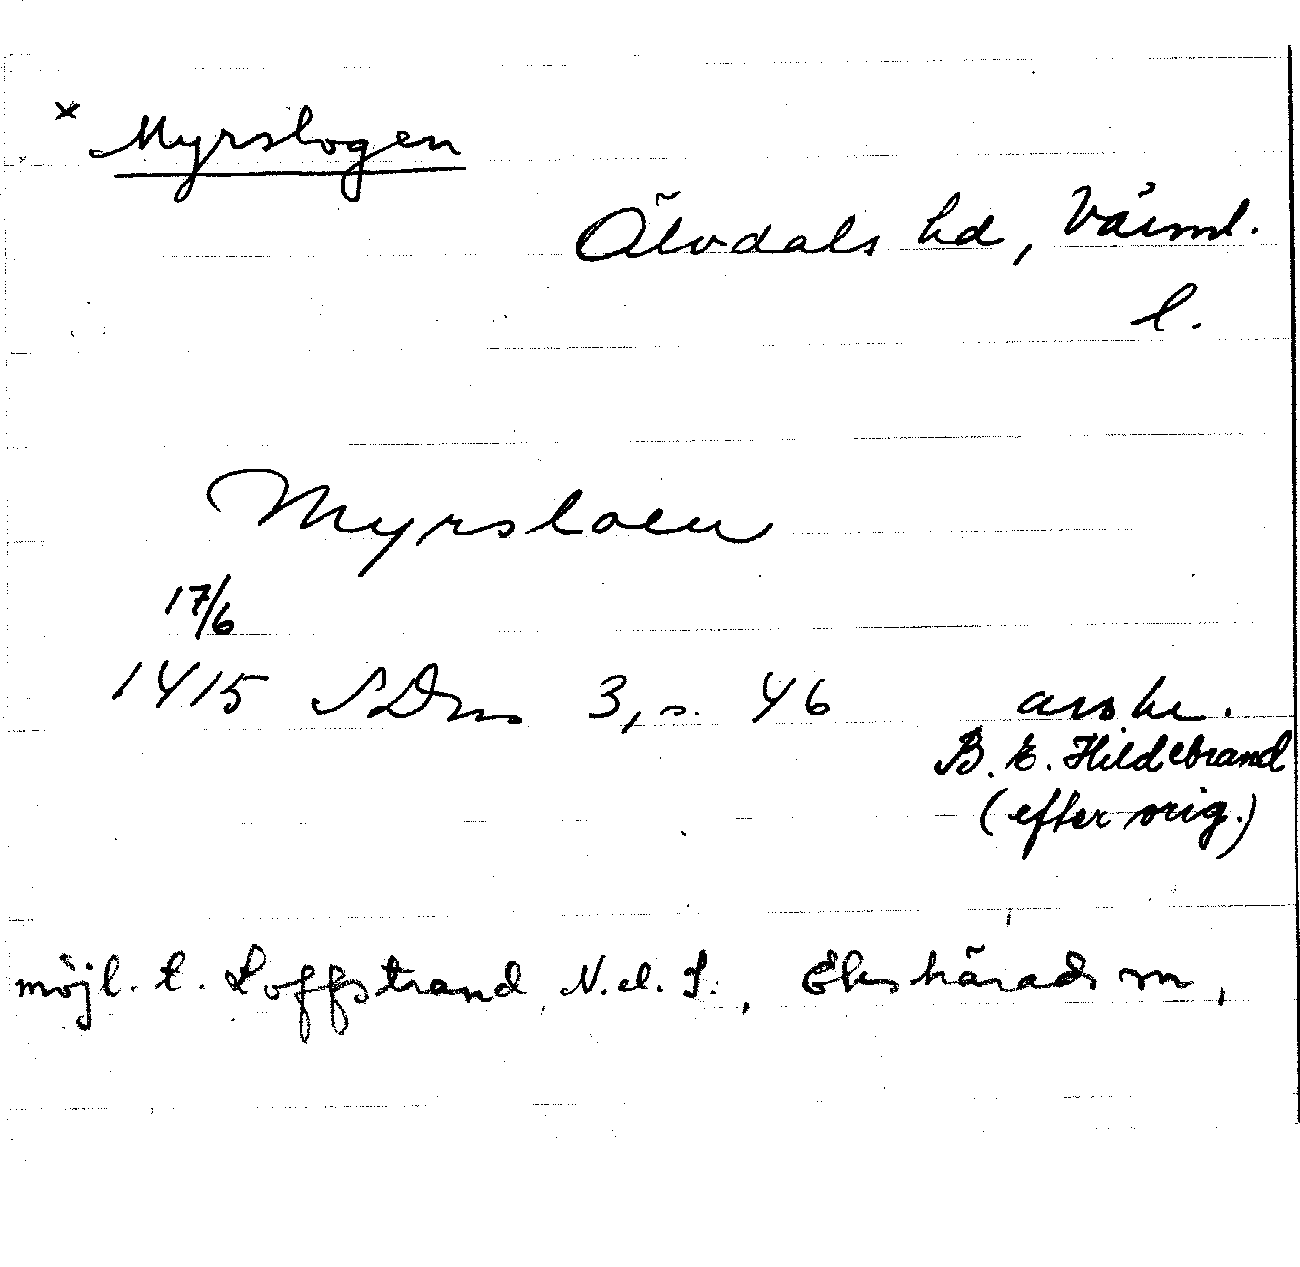 × Myrslogen
Älvdals hd, Värml.
l.
Myrsloen
17/6
1415 SDns 3, s. 46 avskr.
B. E. Hildebrand
(efter orig.)
möjl. t. Loffstrand, N. o. S., Ekshärads sn,